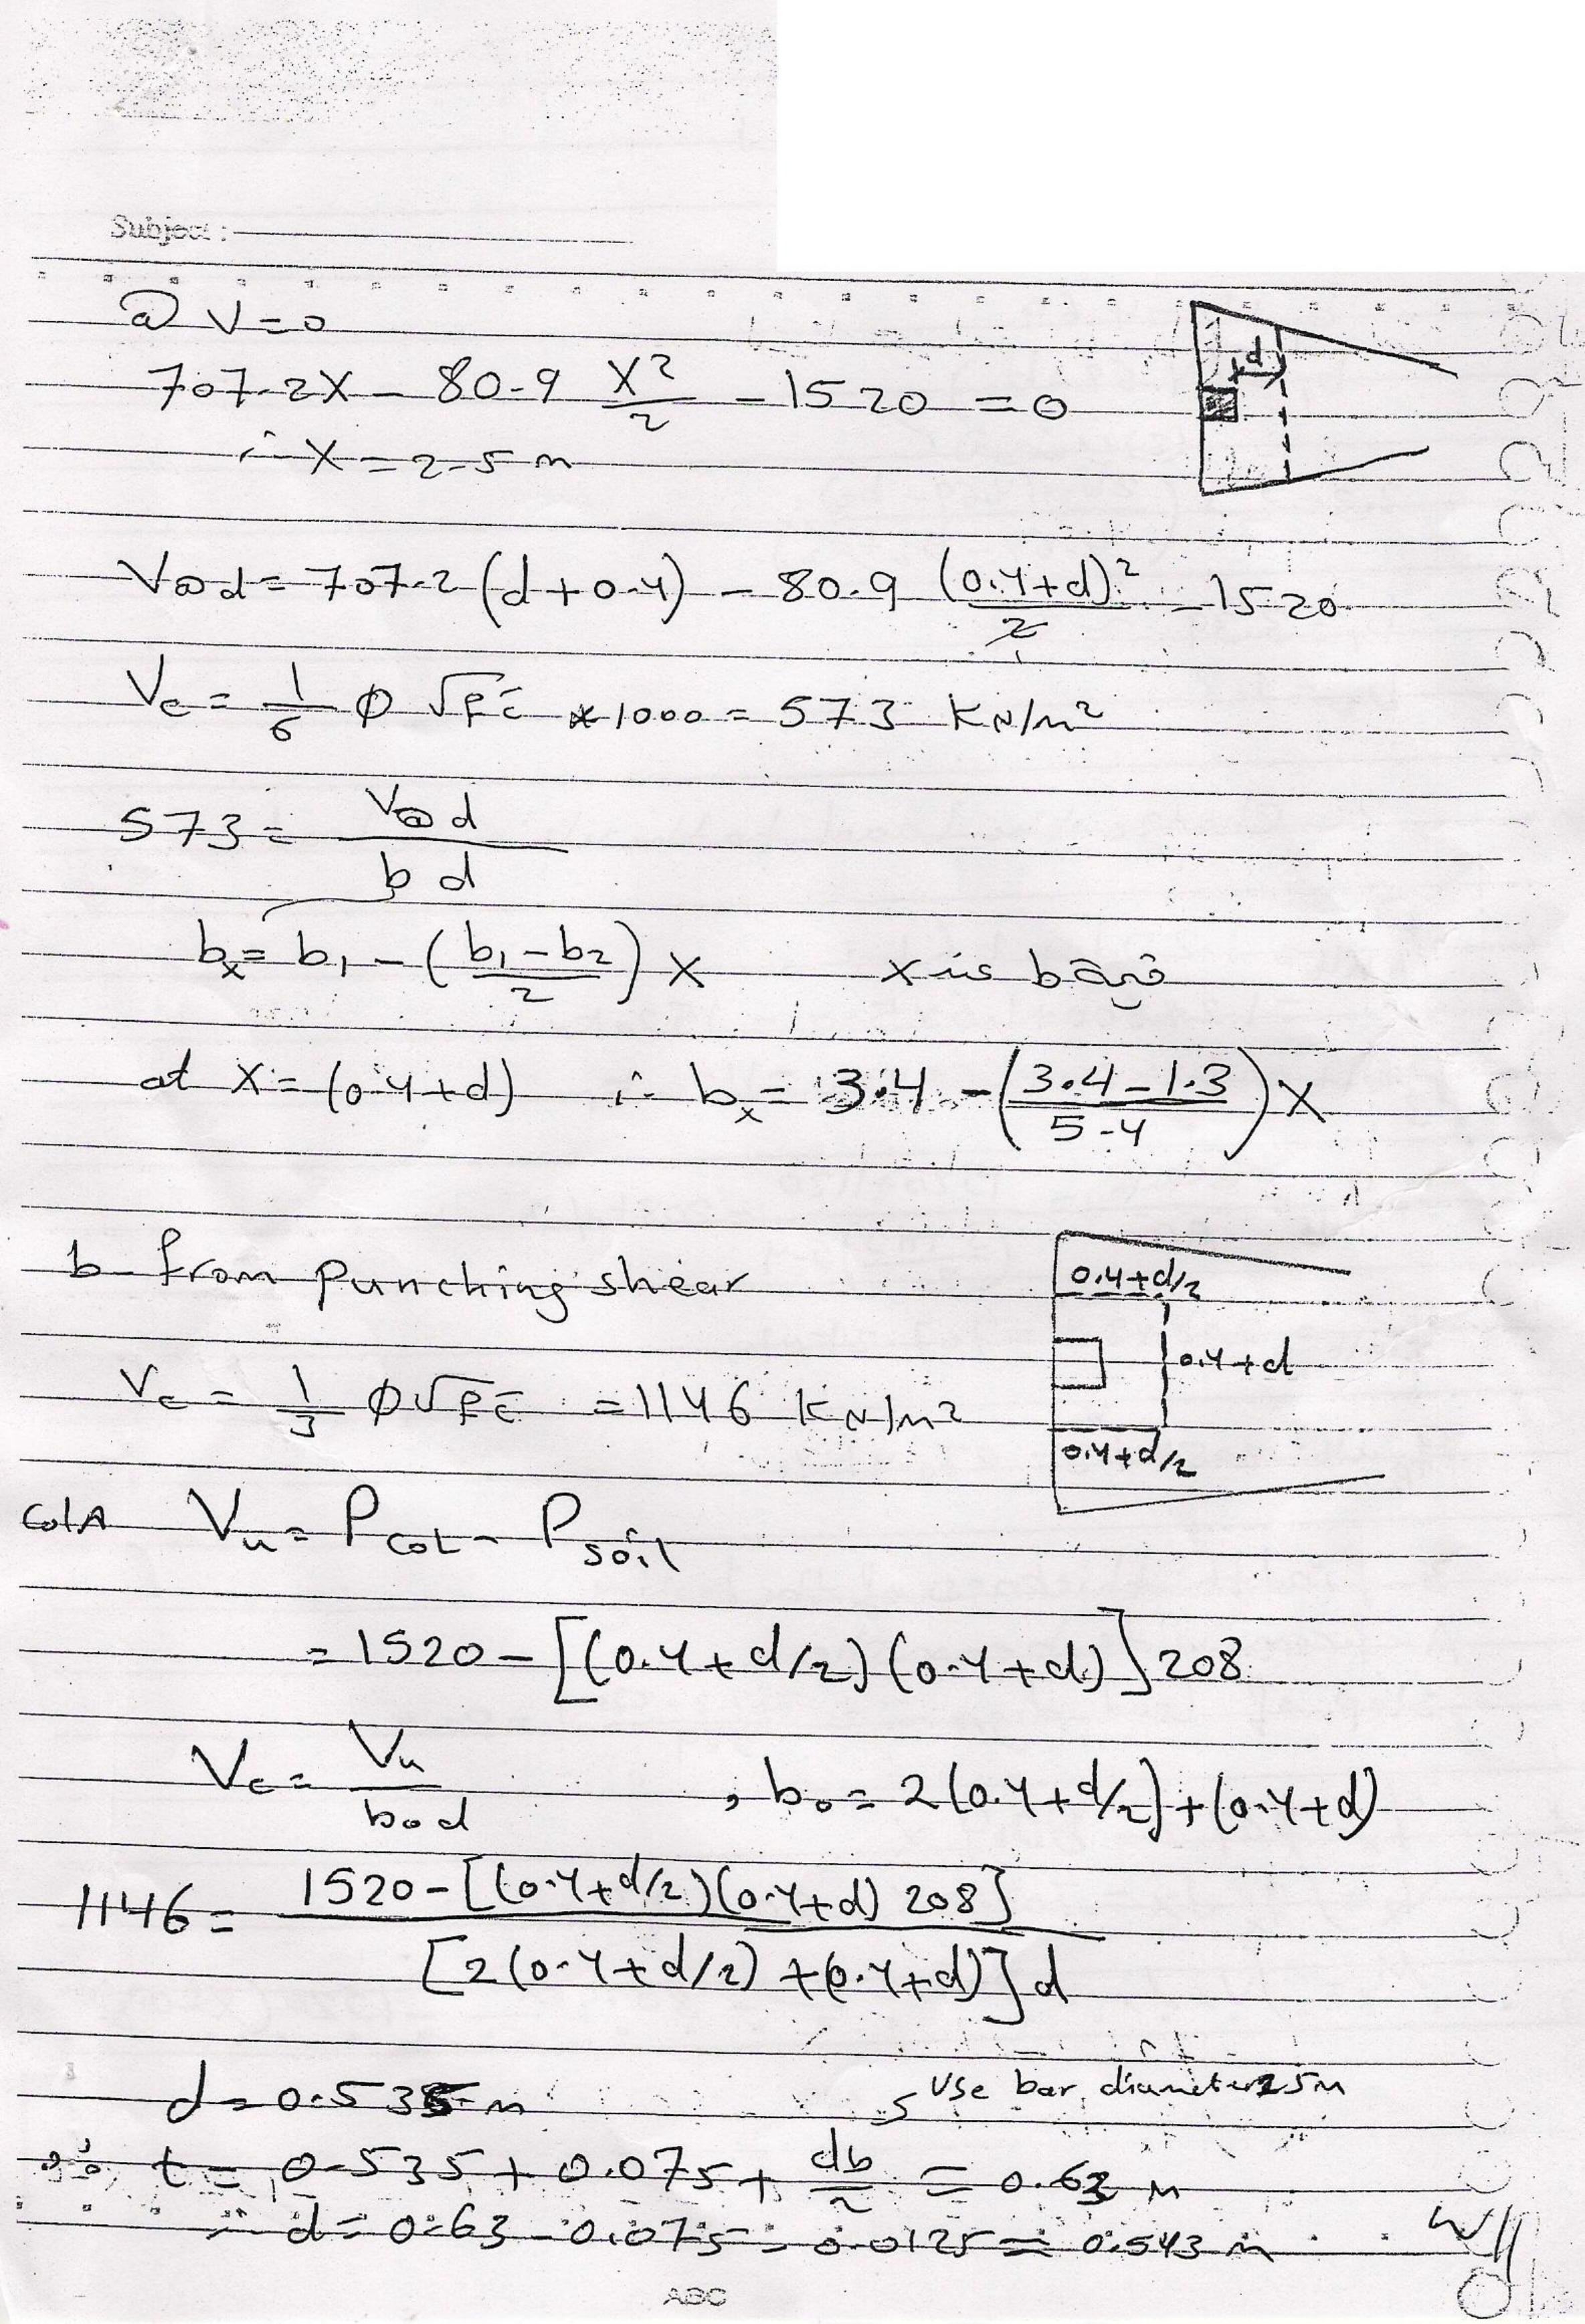 Subject :
@ V=0
707.2X - 80.9 X²/2 - 1520 = 0
∴ X = 2.5 m
d
V@d = 707.2 (d+0.4) - 80.9 (0.4+d)²/2 - 1520
Vc = 1/6 Ø √fc̄ *1000 = 573 KN/m²
573 = V@d / b d
bx = b1 - (b1-b2 / 2) X
at X = (0.4+d) ∴ bx = 3.4 - (3.4-1.3 / 5.4) X
b from punching shear
0.4+d/2
0.4+d
0.4+d/2
Vc = 1/3 Ø √fc̄ = 1146 KN/m²
colA Vu = Pcol - Psoil
= 1520 - [(0.4+d/2)(0.4+d)] 208
Vc = Vu / bod , bo = 2(0.4+d/2)+(0.4+d)
1146 = 1520-[(0.4+d/2)(0.4+d) 208] / [2(0.4+d/2)+(0.4+d)] d
d = 0.535 m
Use bar diameter 25m
∴ t = 0.535 + 0.075 + db/2 = 0.63 m
∴ d = 0.63 - 0.075 - 0.0125 = 0.543 m
ABC